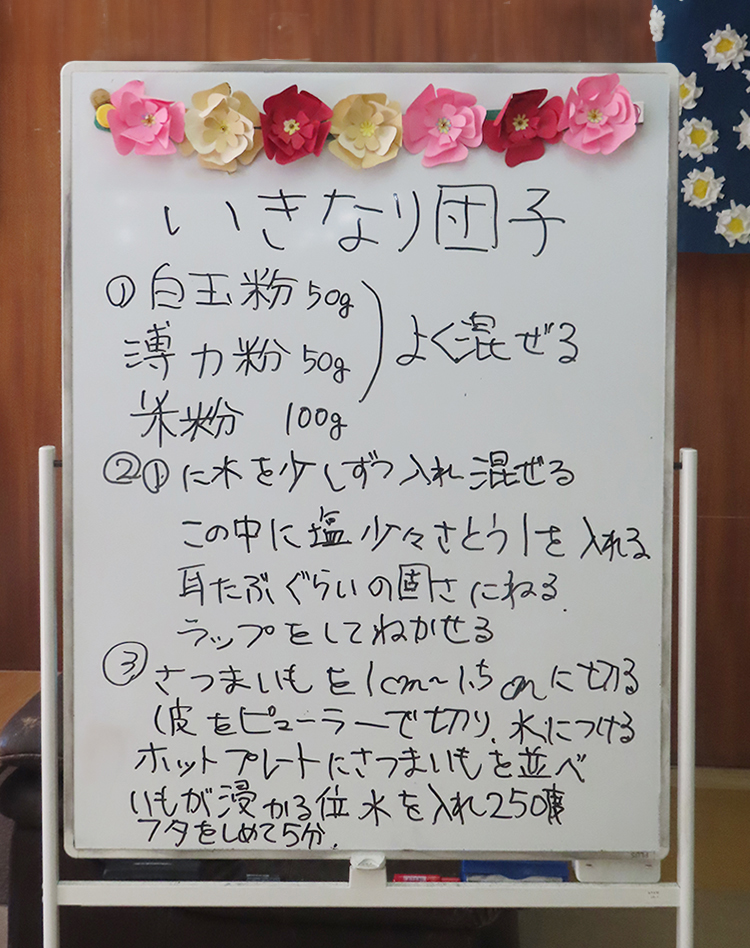 いきなり団子
① 白玉粉 50g
薄力粉 50g ) よく混ぜる
米粉 100g
② ①に水を少しずつ入れ混ぜる
この中に塩少々さとう1を入れる
耳たぶぐらいの固さにねる.
ラップをしてねかせる
③ さつまいもを1cm~1.5cmに切る
(皮をピューラーで切り、水につける
ホットプレートにさつまいもを並べ
いもが浸かる位水を入れ250度
フタをしめて5分.